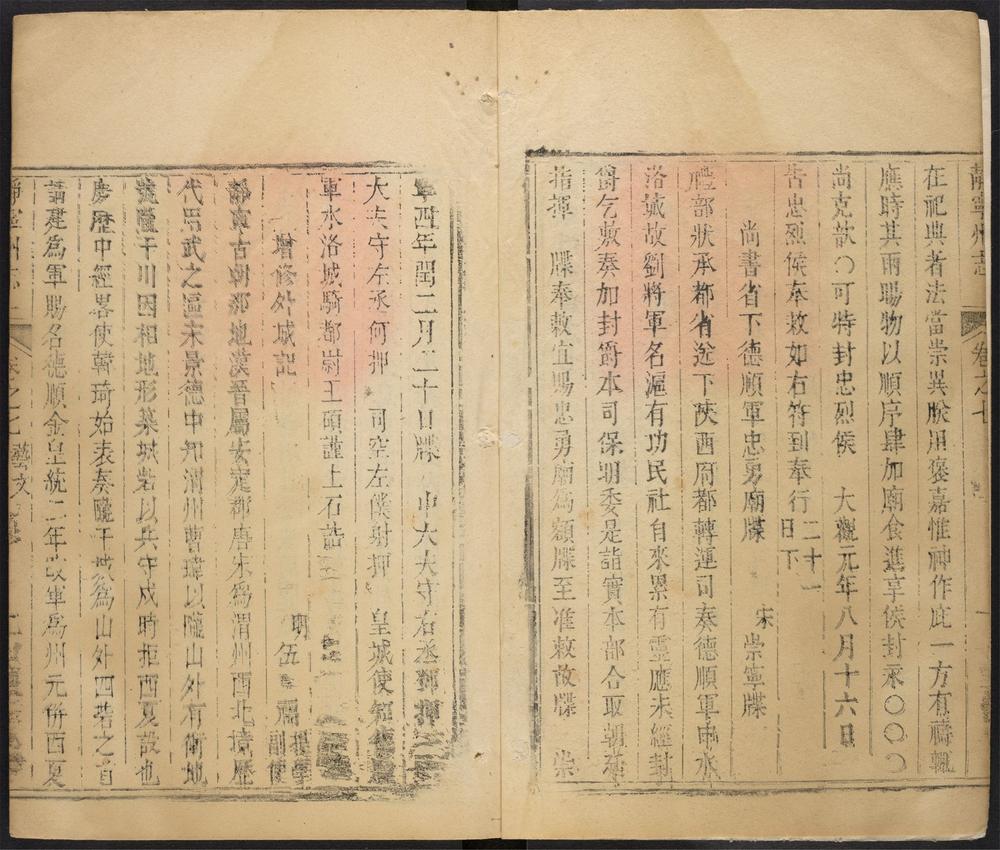 靜寧州志
卷之七
在祀典者法當崇異朕用褒嘉惟神作庇一方有禱輒
應時其雨暘物以順序肆加廟食進享侯封永〇〇〇
尚克歆〇可特封忠烈侯 大觀元年八月十六日
告忠烈侯奉敕如右符到奉行 二十一
日下
尚書省下德順軍忠勇廟牒 宋崇寧牒
禮部狀承都省送下陝西府都轉運司奏德順軍申水
洛城故劉將軍名滬有功民社自來累有靈應未經封
爵乞敷奏加封爵本司保明委是詣實本部合取朝廷
指揮 牒奉敕宜賜忠勇廟為額牒至准敕故牒 崇
寧四年閏二月二十日牒 中大夫守右丞鄧押
大夫守左丞何押 司空左僕射押 皇城使知
軍水洛城騎都尉王頭謹上石誥
增修外城記 明
伍 福 提學
副使
靜寧古朝那地漢晉屬安定郡唐末為渭州西北境歷
代用武之區宋景德中知渭州曹瑋以隴山外有衝地
號隴干川因相地形築城塹以兵守戍時拒西夏故也
慶歷中經畧使韓琦始表奏隴干城為山外四砦之首
請建為軍賜名德順金皇統二年改軍為州元併西夏
靜寧州志
卷之七 藝文